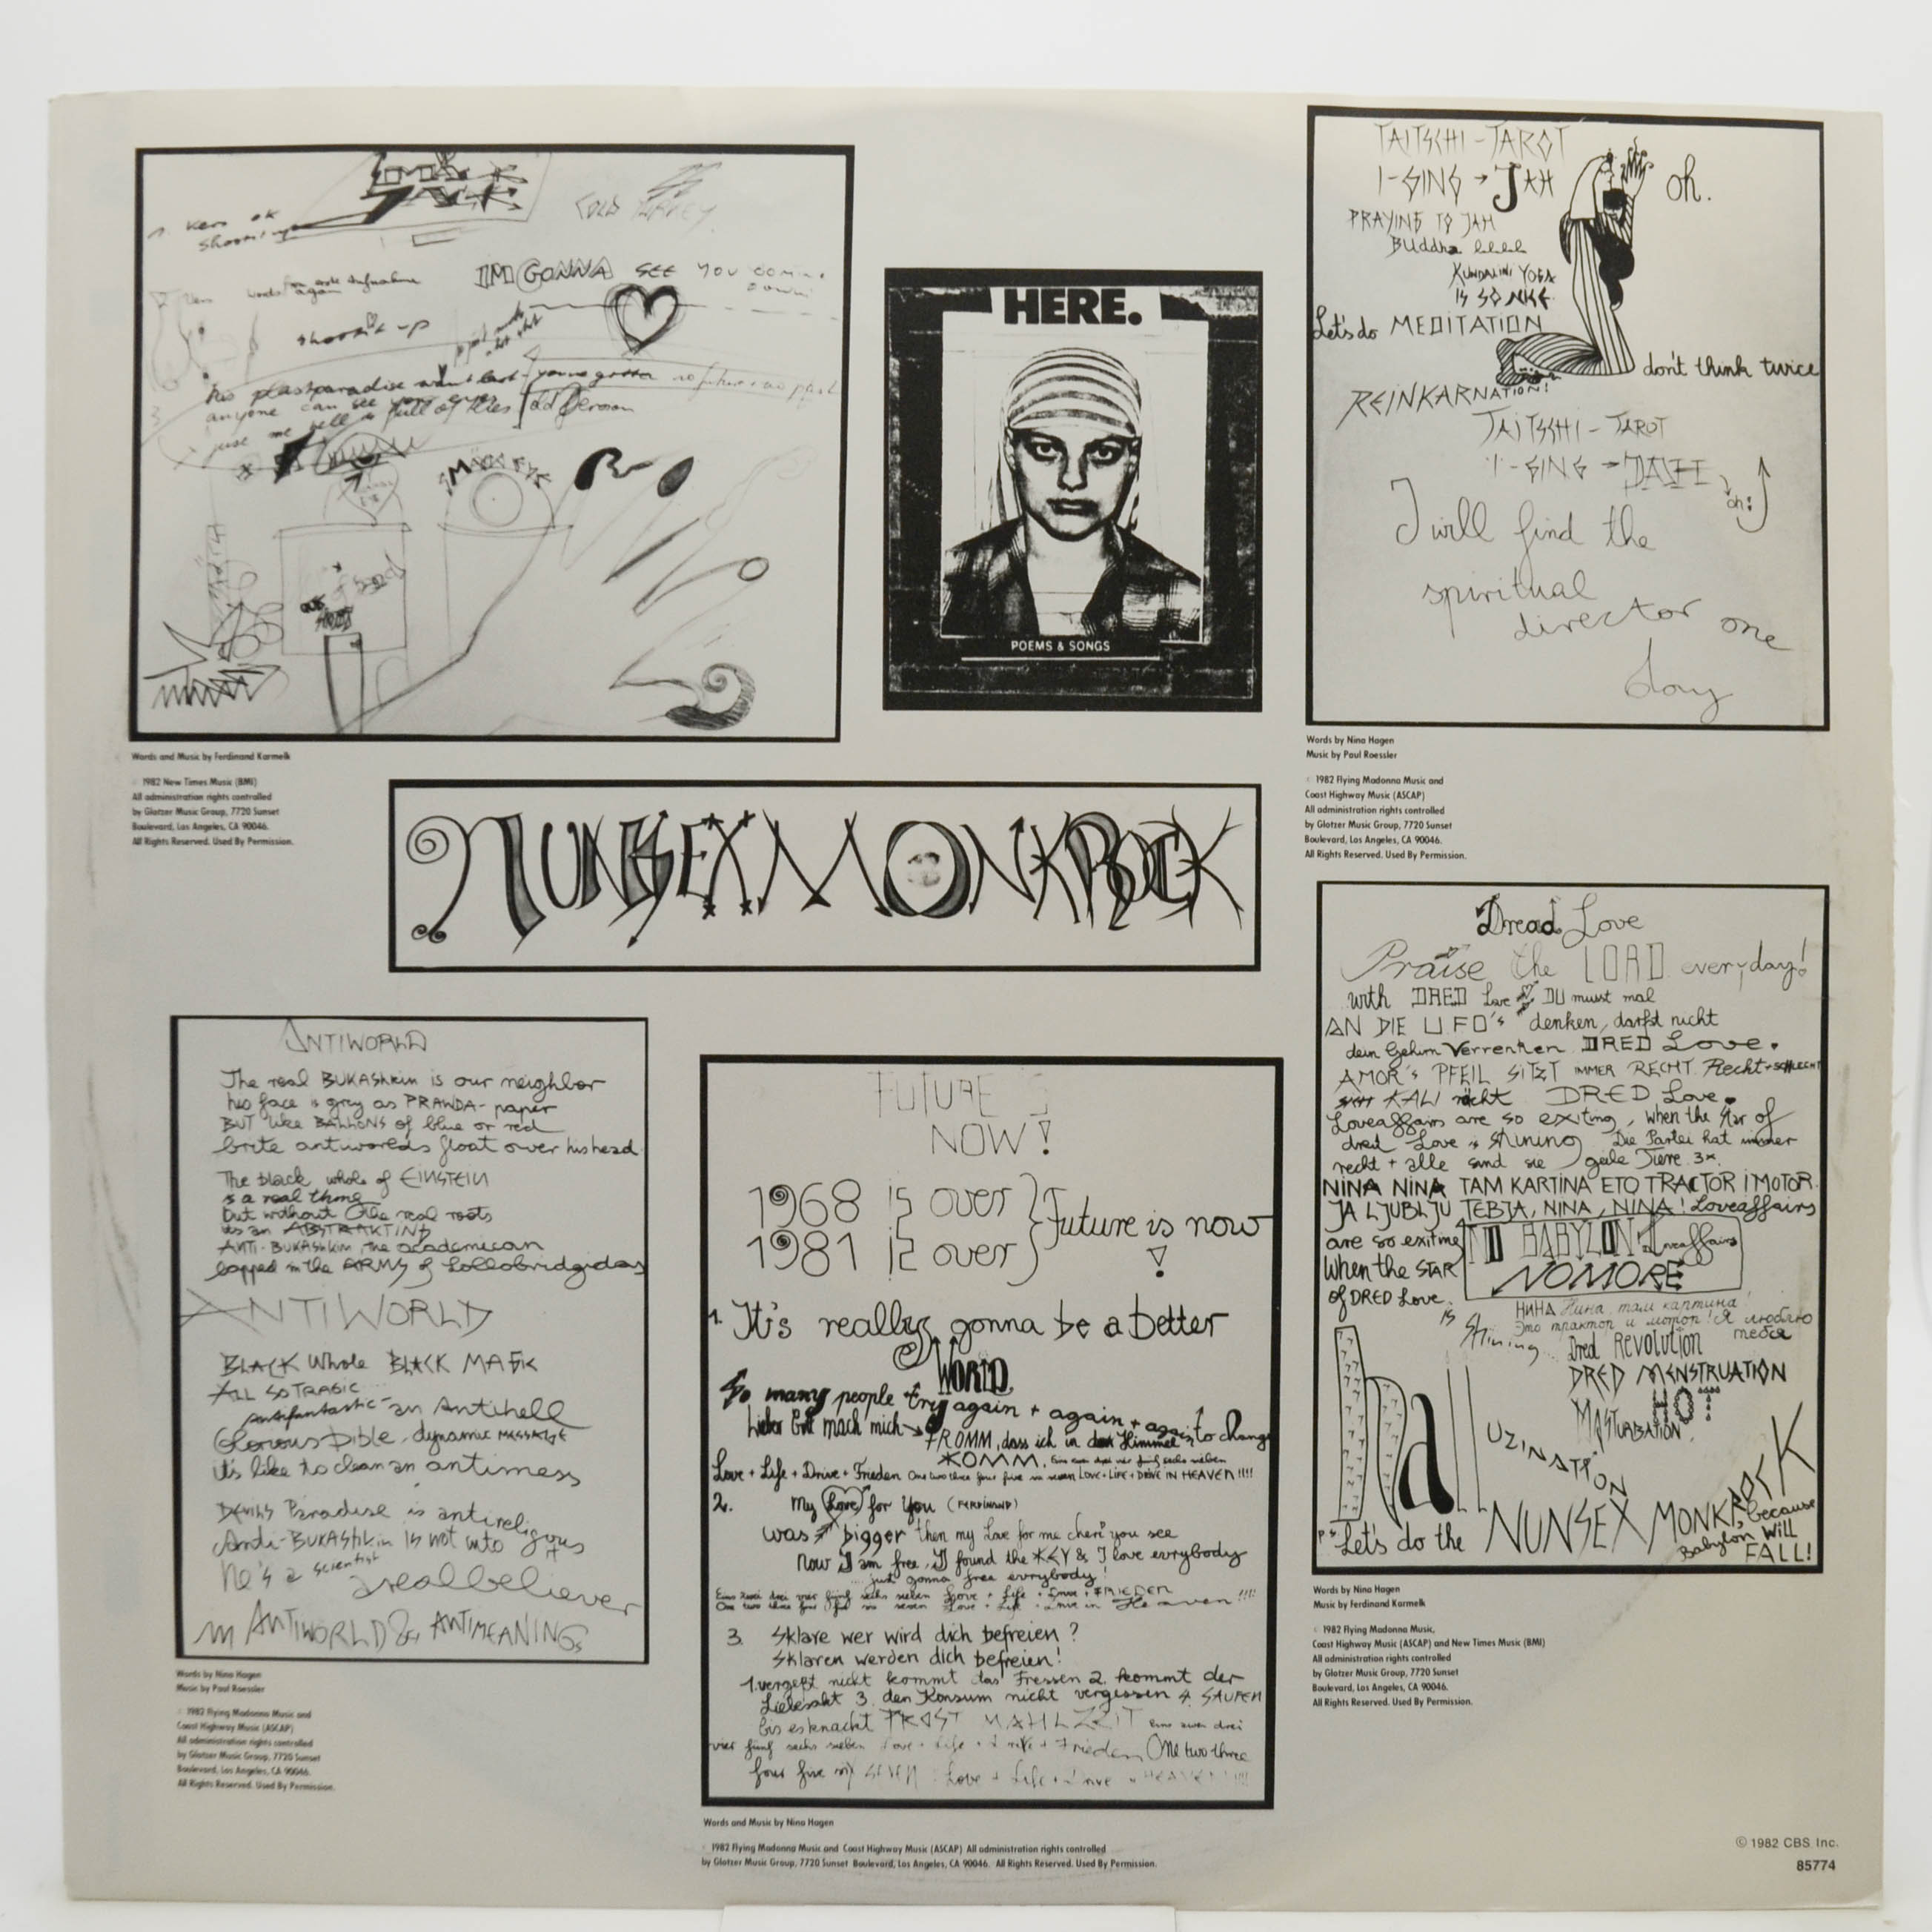 SMACK
JACK
1. Kers ok
shooting
COLD TURKEY
IM GONNA SEE YOU COMING
DOWN
again
shootin up
his plastparadise won't last - you're gotta no future + no past
anyone can see your eyes
just me tell a full of flies
SMÄCK JÄCK
Words and Music by Ferdinand Karmelk
1982 New Times Music (BMI)
All administration rights controlled
by Glotzer Music Group, 7720 Sunset
Boulevard, Los Angeles, CA 90046.
All Rights Reserved. Used By Permission.
HERE.
POEMS & SONGS
TAITSCHI-TAROT
I-GING → JAH oh.
PRAYING TO JAH
Buddha
KUNDALINI YOGA
IS SO NICE
Let's do MEDITATION
don't think twice
REINKARNATION!
TAITSCHI-TAROT
I-GING → JAH
oh!
I will find the
spiritual
director one
day
Words by Nina Hagen
Music by Paul Roessler
1982 Flying Madonna Music and
Coast Highway Music (ASCAP)
All administration rights controlled
by Glotzer Music Group, 7720 Sunset
Boulevard, Los Angeles, CA 90046.
All Rights Reserved. Used By Permission.
NUNSEXMONKROCK
ANTIWORLD
The real BUKAShkin is our neighbor
his face is grey as PRAWDA-paper
BUT like BALLONS of blue or red
brite antiworlds float over his head
The black whole of EINSTEIN
is a real thing
but without the real roots
its an ABSTRAKT THING
ANTI-BUKAShkin, the academican
lapped in the ARMS of Lollobridgidas
ANTIWORLD
BLACK Whole BLACK MAGIK
ALL SO TRAGIC
Antifantastic - an Antihell
Glorious Bible, dynamic MESSAGE
it's like to clean an antimess
Devil's Paradise is antireligious
Anti-BUKAShkin is not into it
he's a scientist
a real believer
in ANTIWORLD & ANTIMEANINGs
Words by Nina Hagen
Music by Paul Roessler
1982 Flying Madonna Music and
Coast Highway Music (ASCAP)
All administration rights controlled
by Glotzer Music Group, 7720 Sunset
Boulevard, Los Angeles, CA 90046.
All Rights Reserved. Used By Permission.
FUTURE IS
NOW!
1968 is over
1981 is over
Future is now
!
1. It's really gonna be a better
WORLD
So many people try again + again + again to change
Lieber Gott mach mich →
FROMM, dass ich in den Himmel
KOMM. Eins zwei drei vier fünf sechs sieben
Love + Life + Drive + Frieden One two three four five six seven LOVE + LIFE + DRIVE IN HEAVEN!!!!
2. My Love for You (FERDINAND)
was bigger then my Love for me cheri you see
Now I am free, I found the KEY & I love evrybody
just gonna free evrybody!
Eins zwei drei vier fünf sechs sieben Love + Life + Drive + FRIEDEN
One two three four five six seven Love + Life + Drive in Heaven!!!!
3. Sklave wer wird dich befreien?
Sklaven werden dich befreien!
1. vergeßt nicht kommt das Fressen 2. kommt der
Liebesakt 3. den Konsum nicht vergessen 4. SAUFEN
bis es knackt PROST MAHLZEIT eins zwei drei
vier fünf sechs sieben Love + Life + Drive + Frieden One two three
four five six SEVEN Love + Life + Drive in HEAVEN !!!!
Words and Music by Nina Hagen
1982 Flying Madonna Music and Coast Highway Music (ASCAP) All administration rights controlled
by Glotzer Music Group, 7720 Sunset Boulevard, Los Angeles, CA 90046. All Rights Reserved. Used By Permission.
Dread Love
Praise the LORD everyday!
with DRED Love DU musst mal
AN DIE UFO's denken, darfst nicht
dein Gehirn Verrenken DRED Love.
AMOR's PFEIL SITZT IMMER RECHT. Recht + SCHLECHT
KALI rächt DRED Love.
Loveaffairs are so exiting, when the Star of
dred Love is Shining Die Partei hat immer
recht + alle sind sie geile Tiere 3x.
NINA NINA TAM KARTINA ETO TRACTOR I MOTOR
JA LJUBLJU TEBJA, NINA, NINA! Loveaffairs
are so exiting
NO BABYLON Loveaffairs
NOMORE
When the STAR
of DRED Love.
is Shining
НИНА Нина там картина!
Это трактор и мотор! Я люблю
тебя
Dred REVOLUTION
DRED MENSTRUATION
HOT
MASTURBATION
HallUZINATION
P.S. Let's do the NUNSEX MONKROCK, because
Babylon Will
FALL!
Words by Nina Hagen
Music by Ferdinand Karmelk
1982 Flying Madonna Music,
Coast Highway Music (ASCAP) and New Times Music (BMI)
All administration rights controlled
by Glotzer Music Group, 7720 Sunset
Boulevard, Los Angeles, CA 90046.
All Rights Reserved. Used By Permission.
© 1982 CBS Inc.
85774